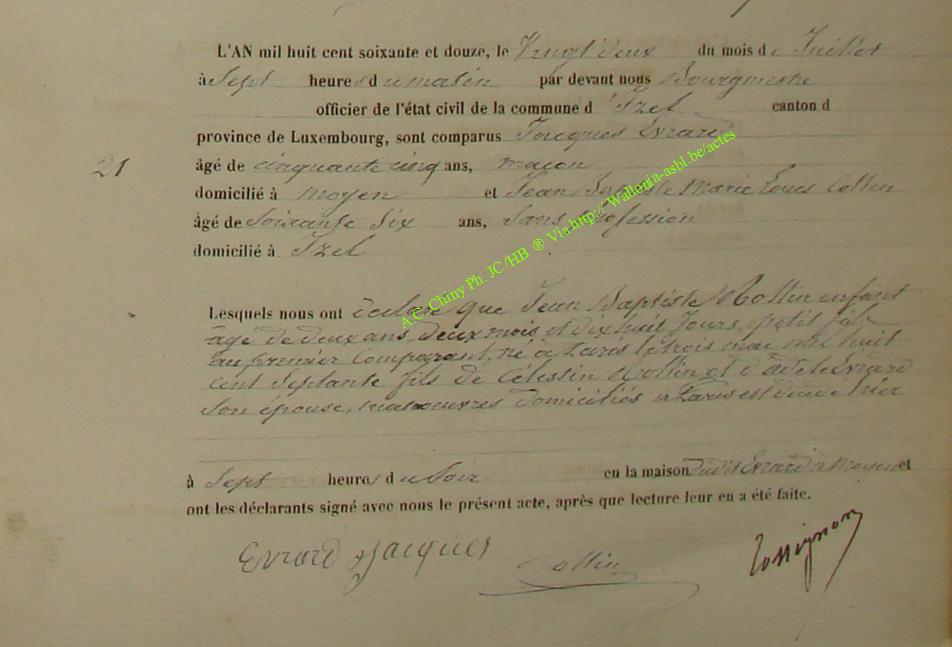 L'AN mil huit cent soixante et douze, le Vingt deux du mois de Juillet
à Sept heures du matin par devant nous Bourgmestre
officier de l'état civil de la commune d'Izel canton d
province de Luxembourg, sont comparus Jacques Evrard
21 âgé de cinquante cinq ans, maçon
domicilié à Moyen et Jean Baptiste Marie Louis Collin
âgé de Soixante Six ans, Sans profession
domicilié à Izel
Lesquels nous ont déclaré que Jean Baptiste Rollin enfant
âgé de deux ans, deux mois et dix huit Jours, petit fils
au premier Comparant, né à Paris le trois mai mil huit
cent Septante fils de Célestin Rollin et d'Adèle Evrard
Son épouse, manoeuvres domiciliés à Paris est décédé hier
à Sept heures du Soir en la maison dudit Evrard à Moyen et
ont les déclarants signé avec nous le présent acte, après que lecture leur en a été faite.
Evrard Jacques Collin Rossignon
A.C. Chiny Ph. JC/HB ® Via http://Wallonia-asbl.be/actes